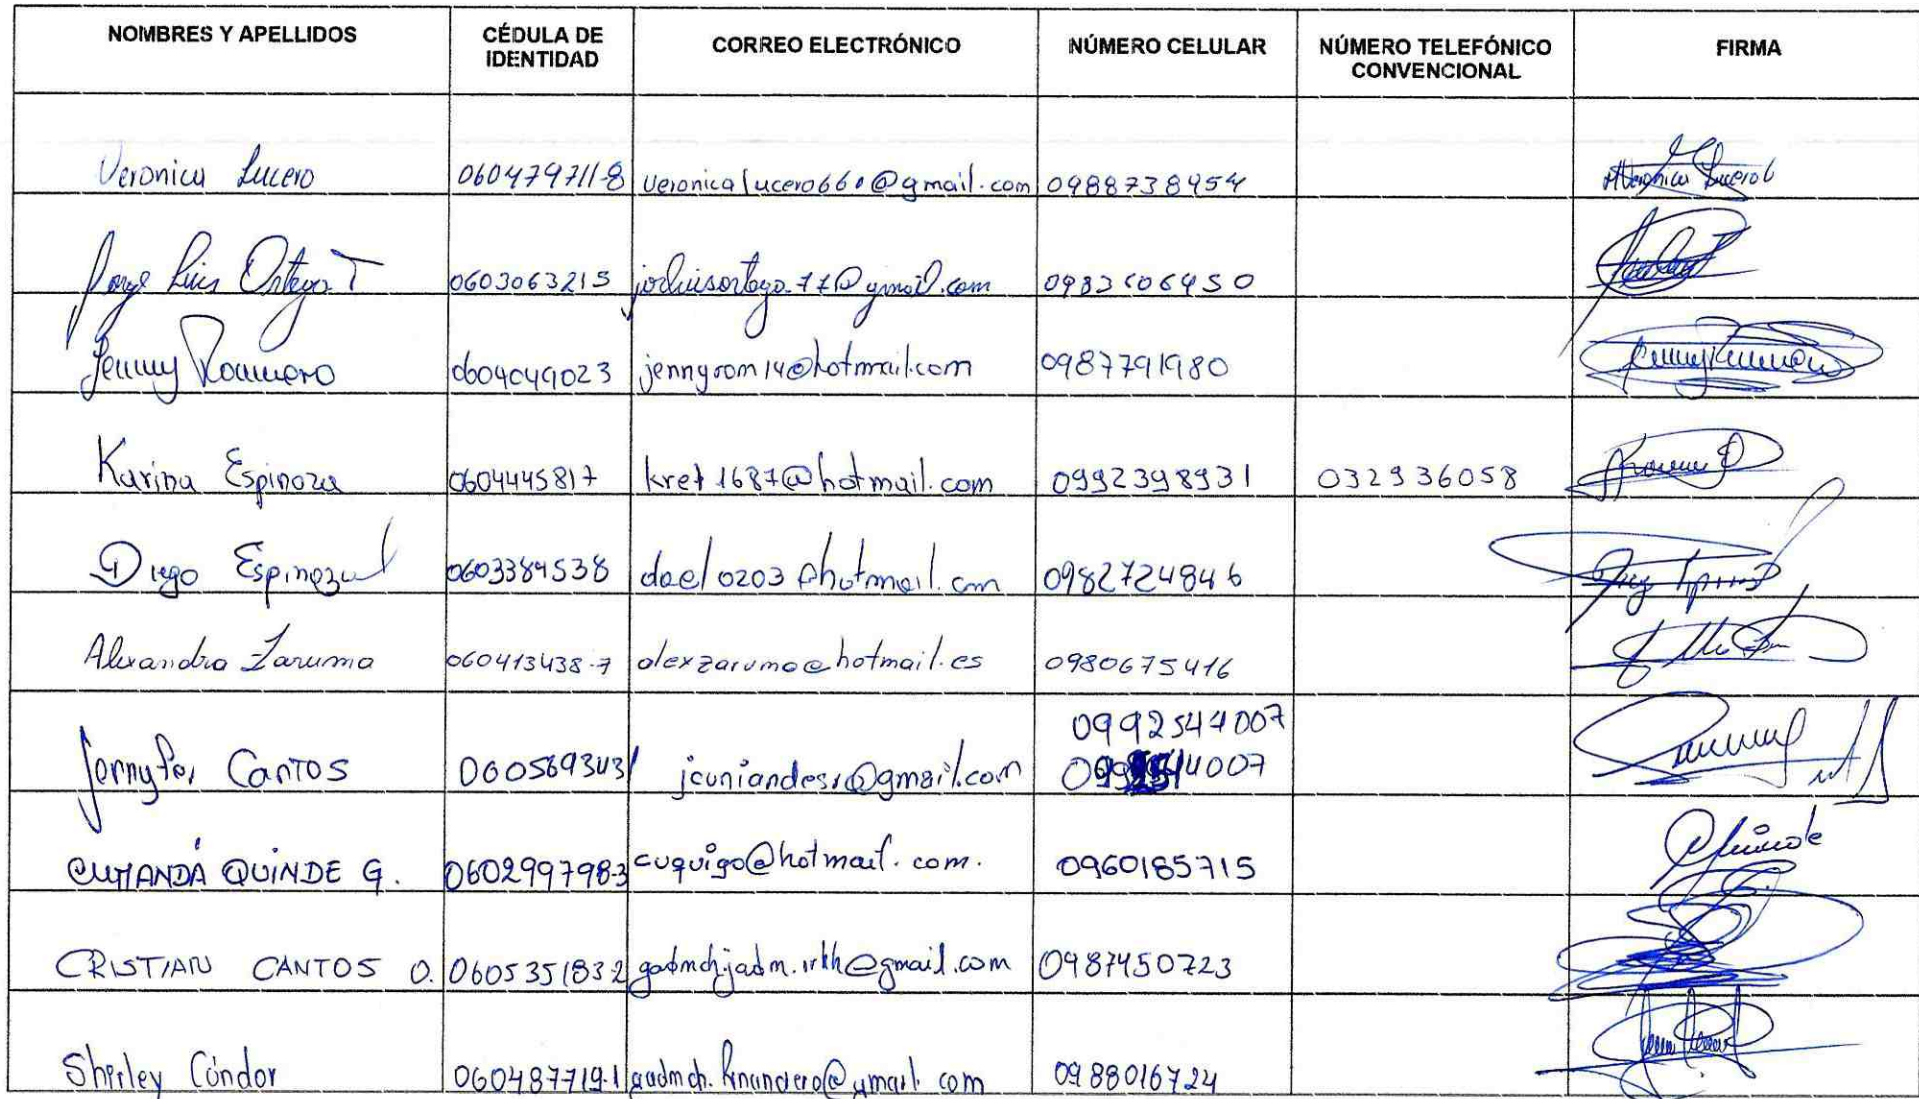 NOMBRES Y APELLIDOS CÉDULA DE IDENTIDAD CORREO ELECTRÓNICO NÚMERO CELULAR NÚMERO TELEFÓNICO CONVENCIONAL FIRMA
Veronica Lucero 060479711-8 veronicalucero660@gmail.com 0988738954 Veronica Lucero
Jorge Luis Ortega T 0603063215 jorluisortega.77@gmail.com
Jenny Romero 0604049023 jennyrom14@hotmail.com 0987791980
Karina Espinoza 0604445817 kret1687@hotmail.com 0992398931 032936058
Diego Espinoza 0603384538 dael0203@hotmail.com 0982724846
Alexandra Zaruma 060413438-7 alexzaruma@hotmail.es 0980675416
0992544007
Jennyfer Cantos 0605693431 4007
CUMANDÁ QUINDE G. 060299798-3 cuquigo@hotmail.com. 0960185715
CRISTIAN CANTOS O. 060535183-2 gadmch.jadm.rrhh@gmail.com 0987450723
Shirley Cóndor 060487719-1 gadmch.financiero@gmail.com 0988016724